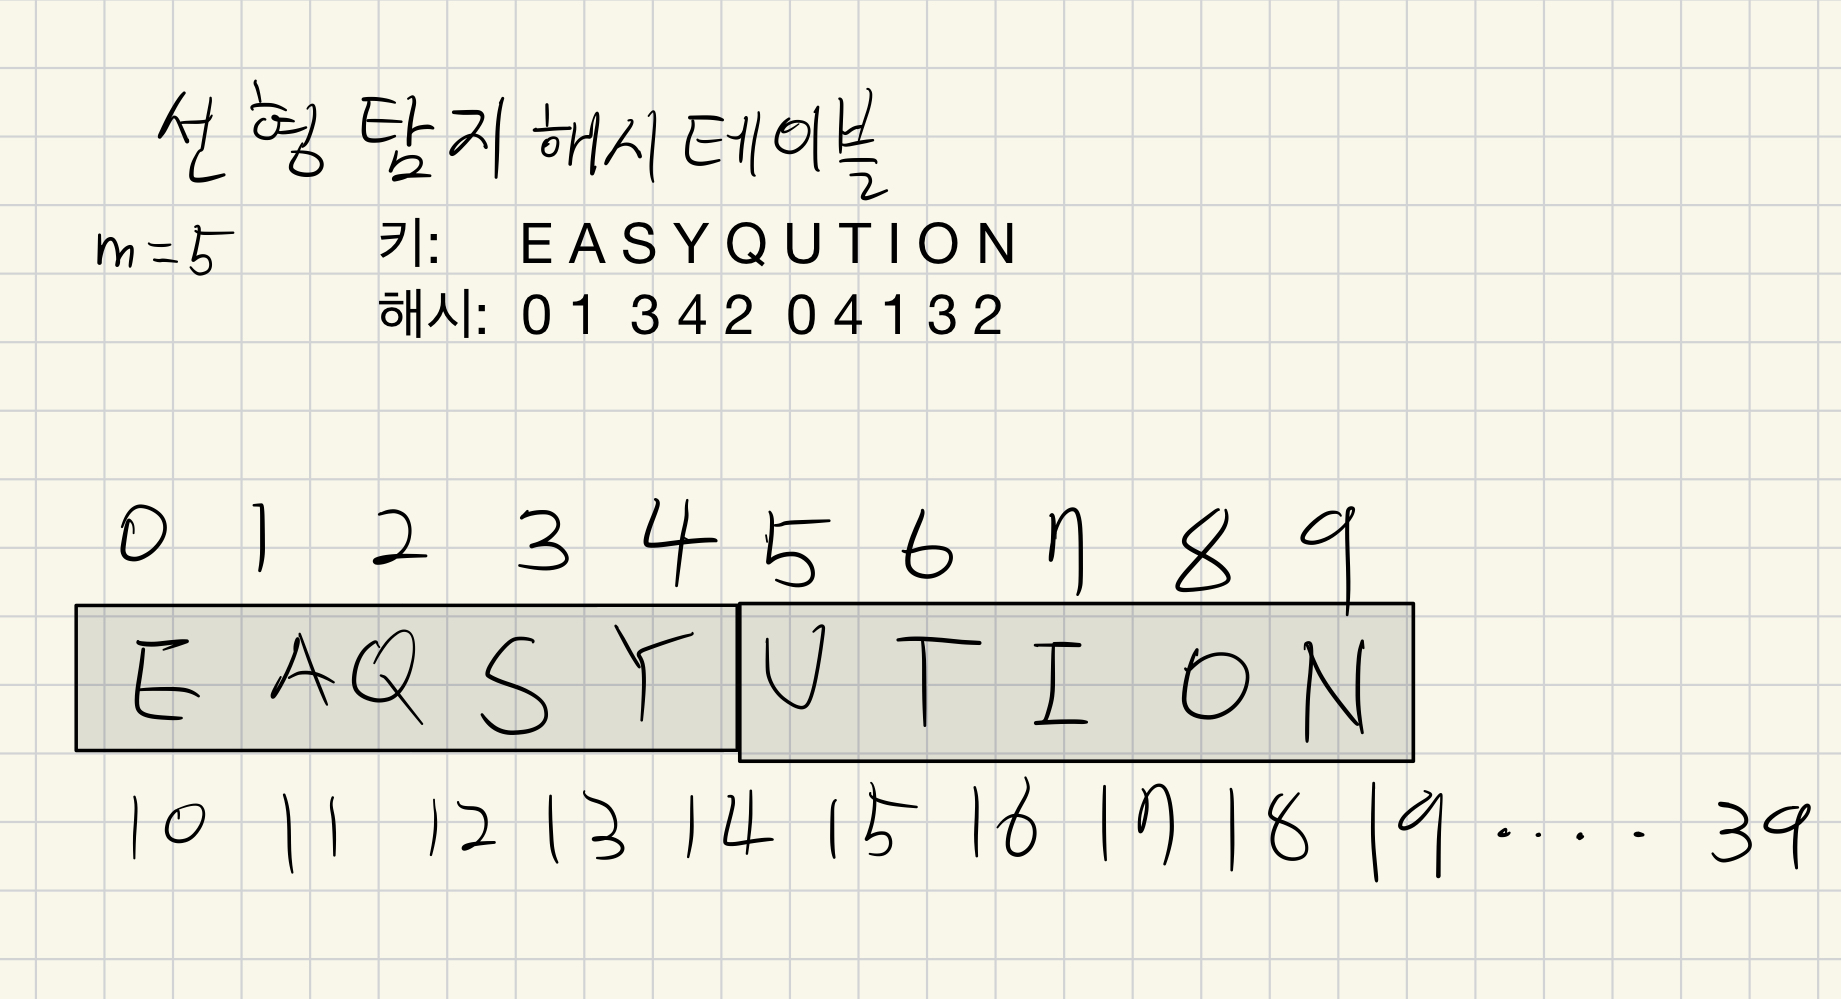 선형 탐지 해시 테이블
m=5 키: E A S Y Q U T I O N
해시: 0 1 3 4 2 0 4 1 3 2
0 1 2 3 4 5 6 7 8 9
E A Q S Y U T I O N
10 11 12 13 14 15 16 17 18 19 .... 39